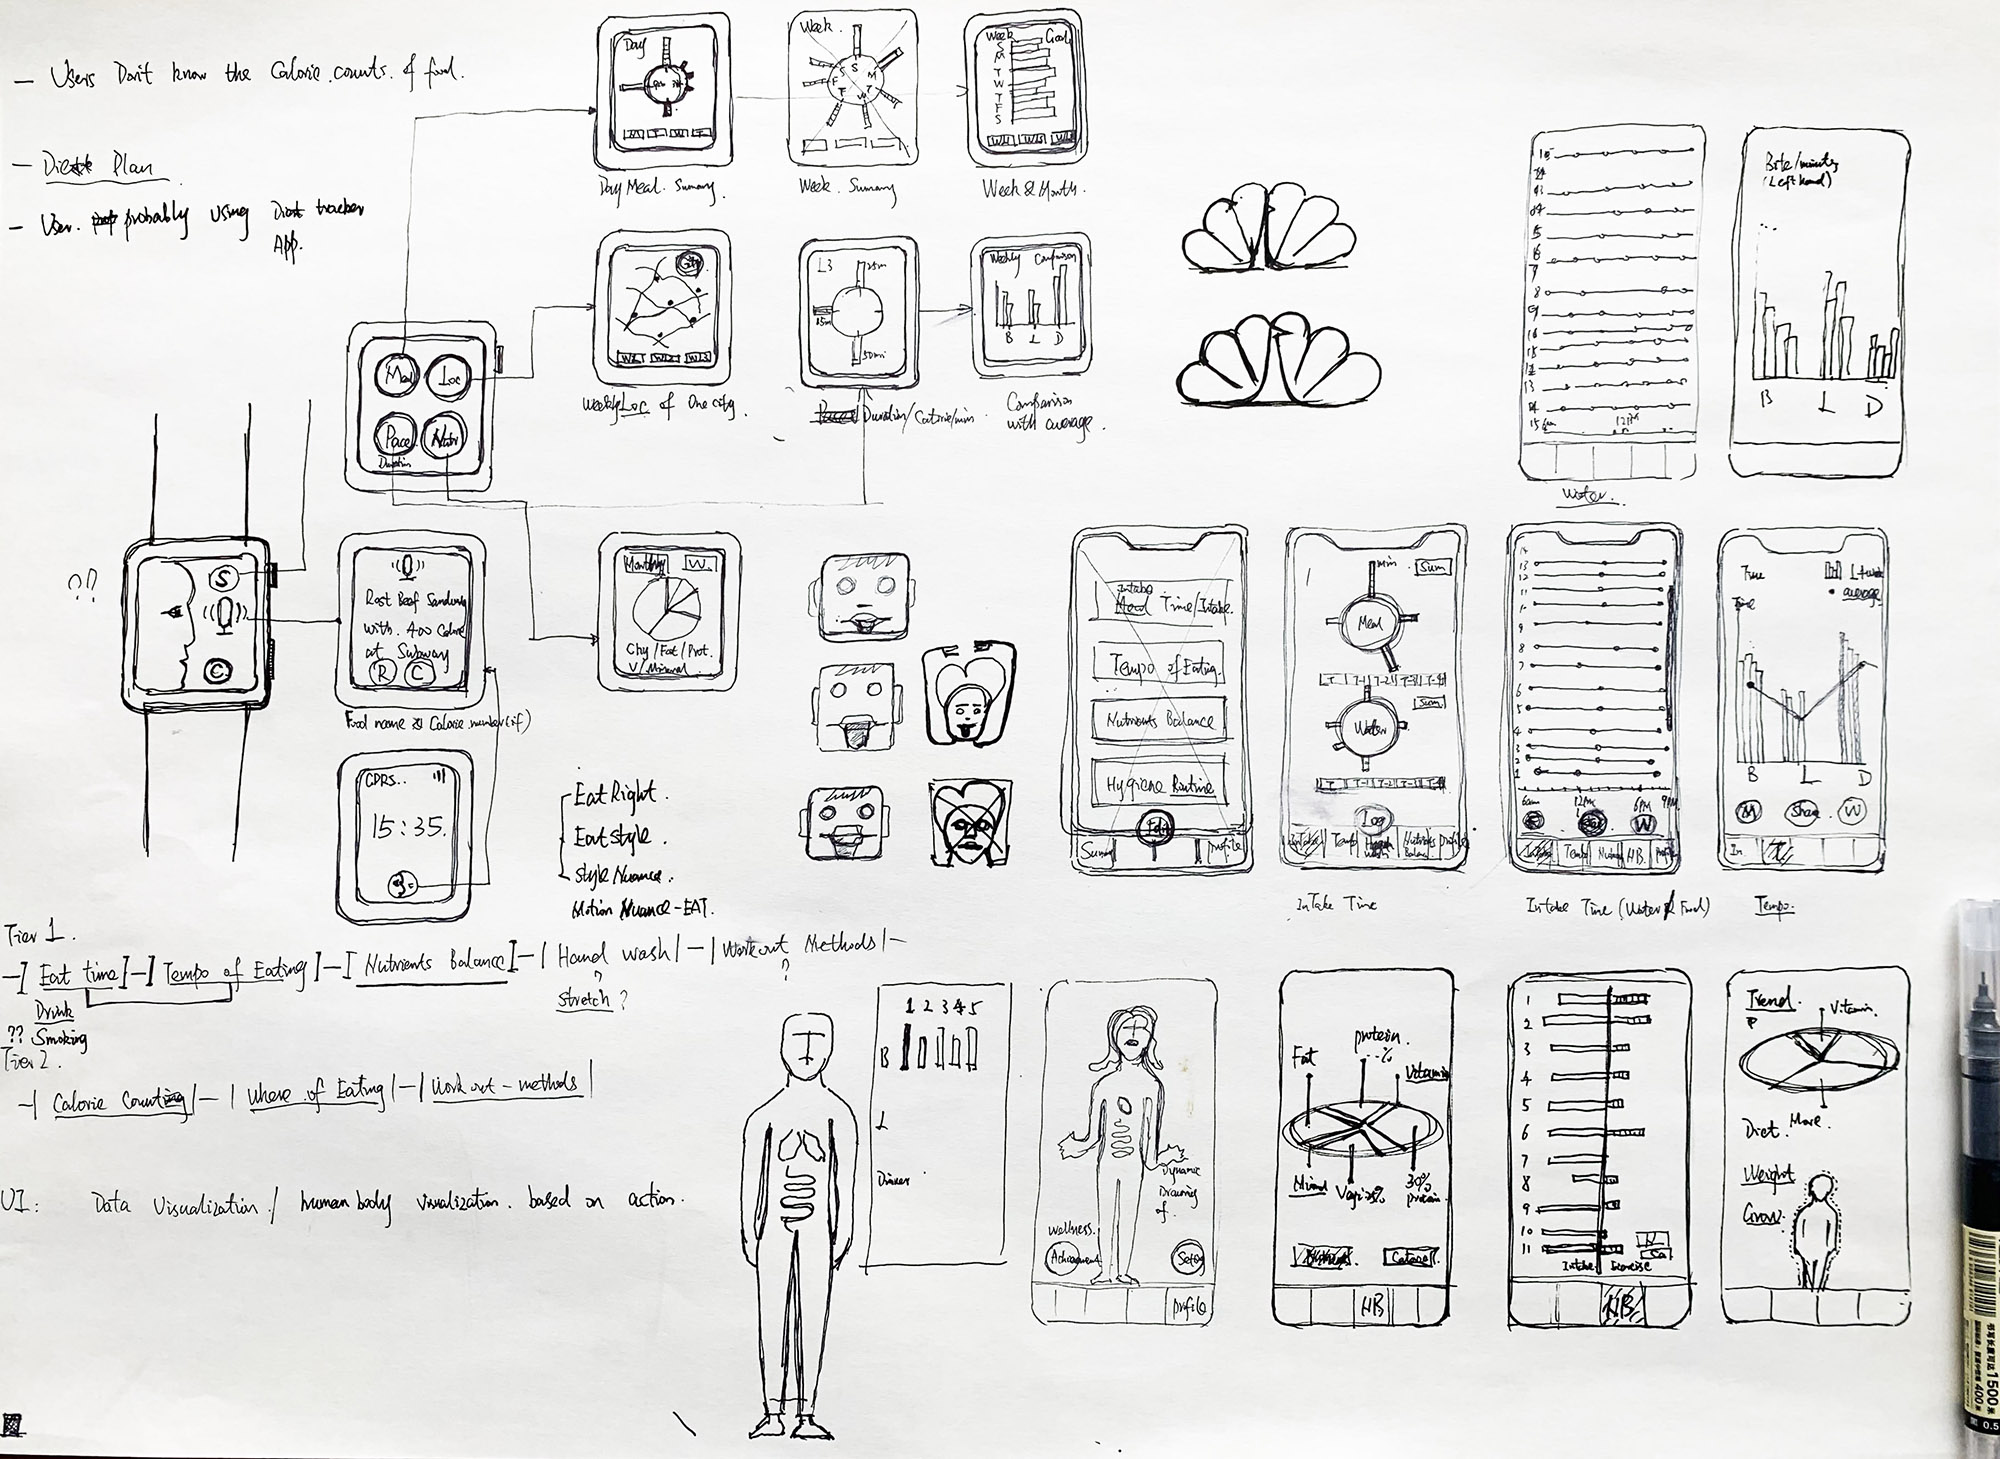 - Users Don't know the Calorie counts of food.
- Diet Plan
- User probably using Diet tracker
App.
Day
Day Meal. Sumary.
Week.
S
M
T
W
T
F
S
Week. Sumary
Week
Goal
S
M
T
W
T
F
S
Week & Month.
City
Weekly Loc of One city.
L3
25m
15m
30min
Duration/Calorie/min
Weekly Comparison
B L D
Comparison
with average.
Meal
Loc
Pace
Nutri
Duration
??
S
C
Rost Beef Sandwich
with 400 Calorie
at Subway
R C
Food name & Calorie number (if)
CDRS..
15:35.
Monthly
W.
Chy / Fat / Prot.
V / Mineral
Eat Right.
Eat style.
Style Nuance.
Motion Nuance-EAT.
Water.
6am
12PM
Bite/minutes
(Left hand)
B L D
Intake
Time/Intake.
Tempo of Eating.
Nutrients Balance
Hygiene Routine
Edit
Sum
profile
min
Sum
Meal
T T-1 T-2 T-3 T-4
Sum
Water
T T-1 T-2 T-3 T-4
Log
Intake Tempo Nutrients Balance profile
InTake Time
13
12
11
10
9
8
7
6
5
4
3
2
1
6am 12PM 6PM 9PM
W
Tempo HB
Intake Time (Water & Food)
Time
average
B L D
M Share W
In
Tempo.
Tier 1.
Eat time - Tempo of Eating - Nutrients Balance - Hand wash - Workout Methods -
?
Stretch?
Drink
?? Smoking
Tier 2.
Calorie Counting - Where of Eating - Work out-methods
UI: Data Visualization / human body visualization. based on action.
1 2 3 4 5
B
L
Dinner
Dynamic
Drawing
of.
wellness.
Achievement
Setting
profile
Fat
protein.
..%
Vitamin
30%
protein.
HB
1
2
3
4
5
6
7
8
9
10
11
Intake Exercise
HB
Trend.
P
Vitamin.
Diet. More.
Weight
Grow.
1500米
400米
0.5